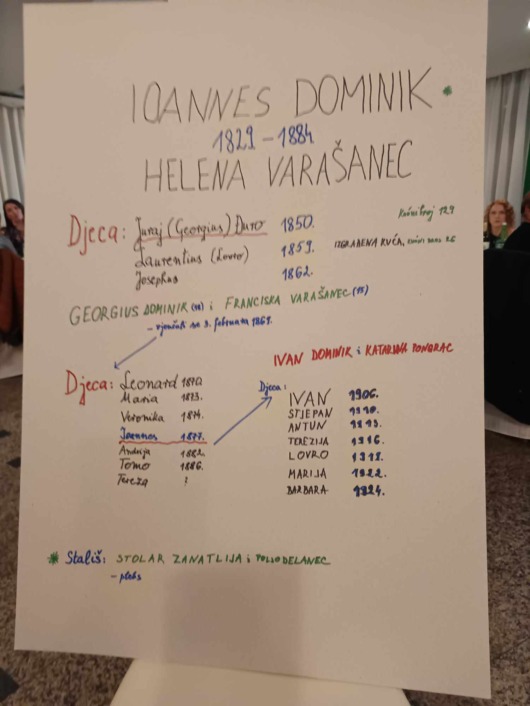 IOANNES DOMINIK *
1829 – 1884
HELENA VARAŠANEC
Djeca: Juraj (Georgius) Đuro 1850.
Laurentius (Lovro) 1859.
Josephus 1862.
Kućni broj 129
IZGRAĐENA KUĆA, kućni broj 26
GEORGIUS DOMINIK (18) i FRANCISKA VARAŠANEC (15)
- vjenčali se 3. februara 1869.
Djeca: Leonard 1870.
Maria 1873.
Veronika 1874.
Joannes 1877.
Andrija 1882.
Tomo 1886.
Tereza ?
IVAN DOMINIK i KATARINA PONGRAC
Djeca:
IVAN 1906.
STJEPAN 1910.
ANTUN 1913.
TEREZIJA 1916.
LOVRO 1918.
MARIJA 1922.
BARBARA 1924.
* Stališ: STOLAR ZANATLIJA i POLJODELANEC
- plebs